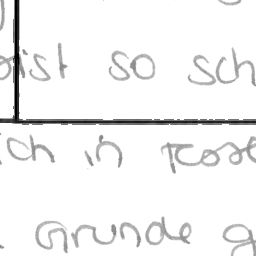 ist so sch
ich in
Grunde g